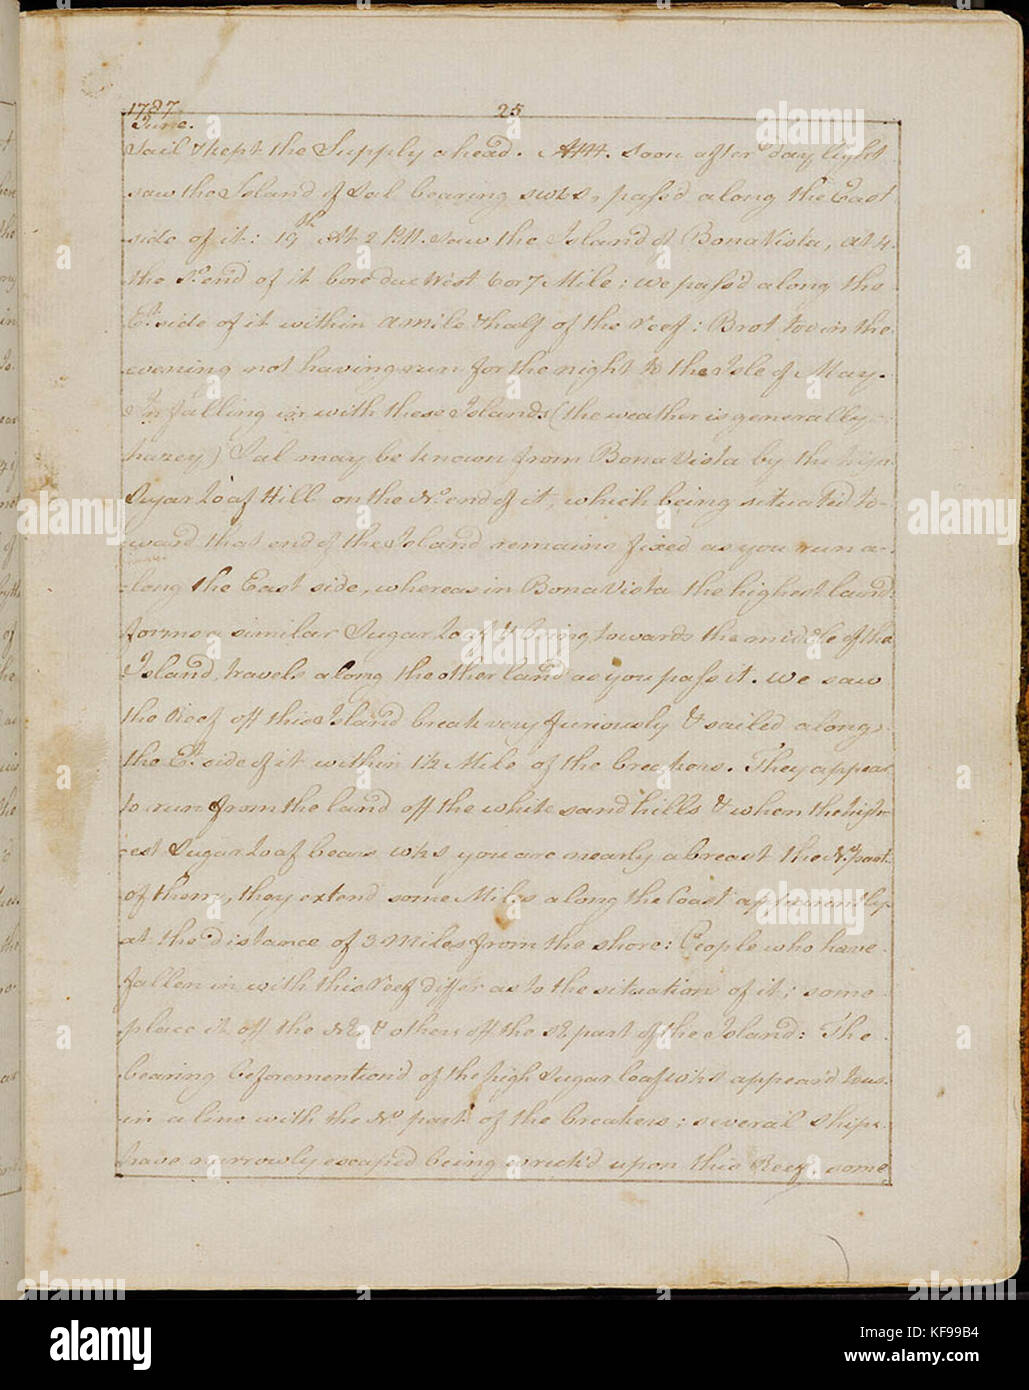 1787
25
June.
Sail & kept the Supply ahead. AM. soon after day light
saw the Island of Sal bearing SWbS, pass'd along the East
side of it: 19th At 2 PM. saw the Island of Bona Vista, at 4.
the No. end of it bore due West 6 or 7 Mile: we pass'd along the
Et. side of it within a mile & half of the reef: Brot too in the
evening not having run for the night to the Isle of May.
In falling in with these Islands (the weather is generally
hazey) Sal may be known from Bona Vista by the high
Sugar Loaf Hill on the No. end of it, which being situated to-
ward that end of the Island remains fixed as you run a-
-long the East side, whereas in Bona Vista the highest land
forms a similar Sugar Loaf & being towards the middle of the
Island, travels along the other land as you pass it. We saw
the Reef off this Island break very furiously & sailed along
the Et. side of it within 1½ Mile of the breakers. They appear
to run from the land off the white sand hills & when the high-
-est Sugar Loaf bears WbS you are nearly abreast the No. part
of them, they extend some Miles along the Coast apparently
at the distance of 3 Miles from the shore: People who have
fallen in with this reef differ as to the situation of it; some
place it off the NE & others off the SE part of the Island: The
bearing beforemention'd of the high Sugar loaf WbS appear'd to us
in a line with the No. part of the breakers; several Ships
have narrowly escaped being wreck'd upon this Reef. some
alamy
Image ID: KF99B4
www.alamy.com